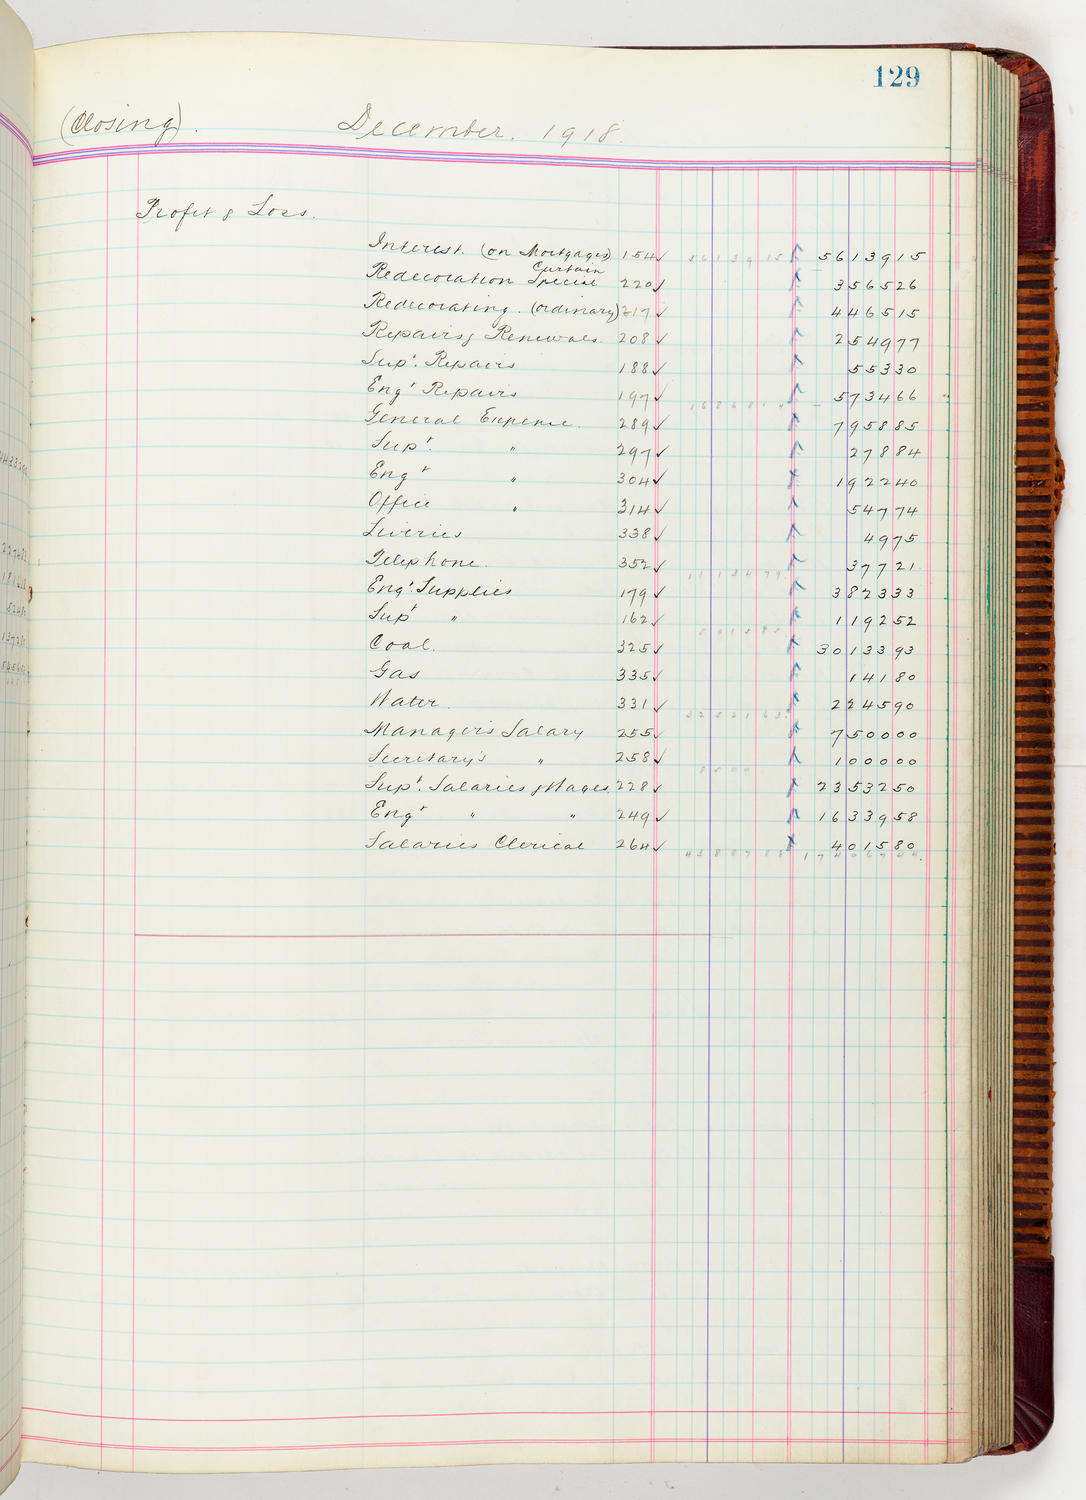 129
(Closing). December. 1918.
Profit & Loss.
Interest. (on Mortgages) 154 ✓ 5613915
Curtain
Redecoration Special 220 ✓ 356526
Redecorating. (ordinary) 217 ✓ 446515
Repairs & Renewals. 208 ✓ 254977
Supt. Repairs 188 ✓ 55330
Engr Repairs 197 ✓ 573466
General Expense. 289 ✓ 795885
Supt. " 297 ✓ 27884
Engr " 304 ✓ 192240
Office " 314 ✓ 54774
Liveries 338 ✓ 4975
Telephone. 352 ✓ 37721
Engr. Supplies 179 ✓ 382333
Supt " 162 ✓ 119252
Coal. 325 ✓ 3013393
Gas 335 ✓ 14180
Water. 331 ✓ 224590
Manager's Salary 255 ✓ 750000
Secretary's " 258 ✓ 100000
Supt. Salaries & Wages 228 ✓ 2353250
Engr " " 249 ✓ 1633958
Salaries Clerical 264 ✓ 401580